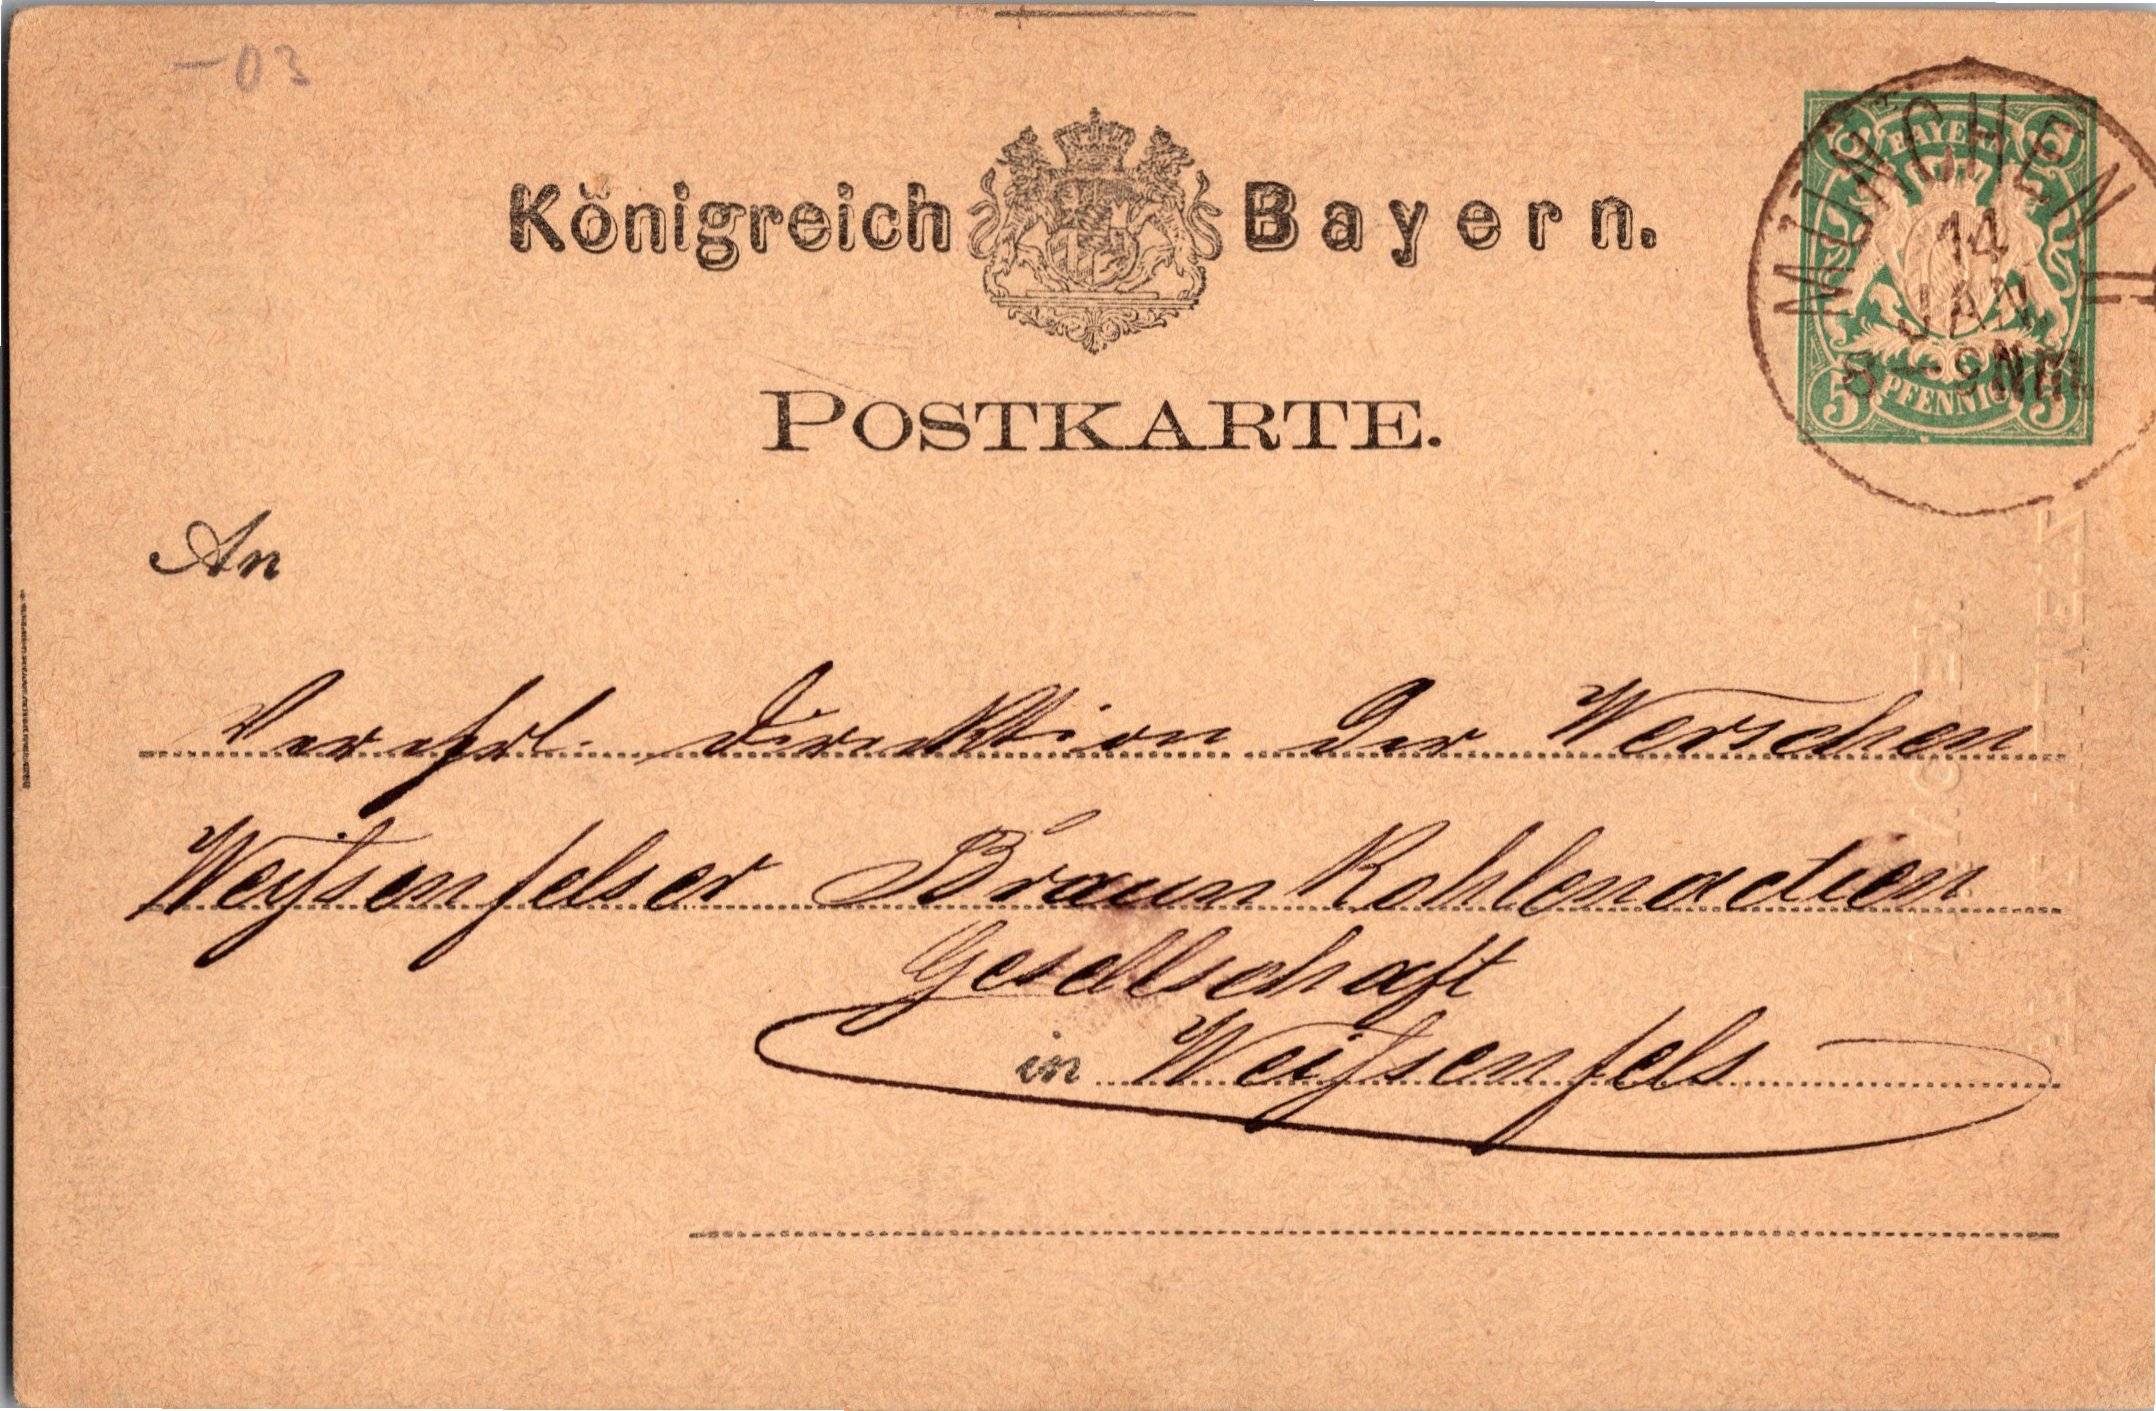 -03
Königreich Bayern.
POSTKARTE.
BAYERN
5 PFENNIG 5
MÜNCHEN II
14
JAN.
8-9 NM.
An
Verehrl. Direktion der Werschen
Weißenfelser Braunkohlenactien
Gesellschaft
in Weißenfels